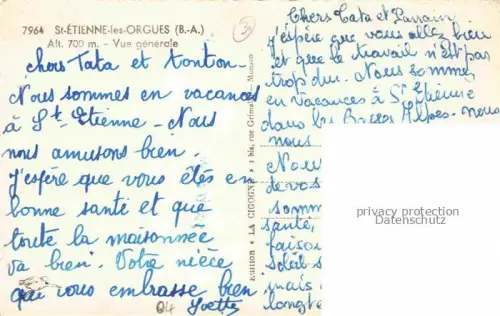 7964 St-ÉTIENNE-les-ORGUES (B.-A.)
Alt. 700 m. - Vue générale
chers Tata et tonton -
Nous sommes en vacances
à St. Etienne - Nous
nous amusons bien.
J'espère que vous êtes en
bonne santé et que
toute la maisonnée
va bien. Votre nièce
qui vous embrasse bien
Yvette
Edition « LA CIGOGNE » 1 bis, rue Grimaldi Monaco
Chers Tata et Parrain
J'espère que vous allez bien
et que le travail n'est pas
trop dur. Nous sommes
en vacances à St Etienne
dans les Basses Alpes. nous
nous
Nous
de vos
somm
santé,
faison
soleil s
mais
longte
privacy protection
Datenschutz
04